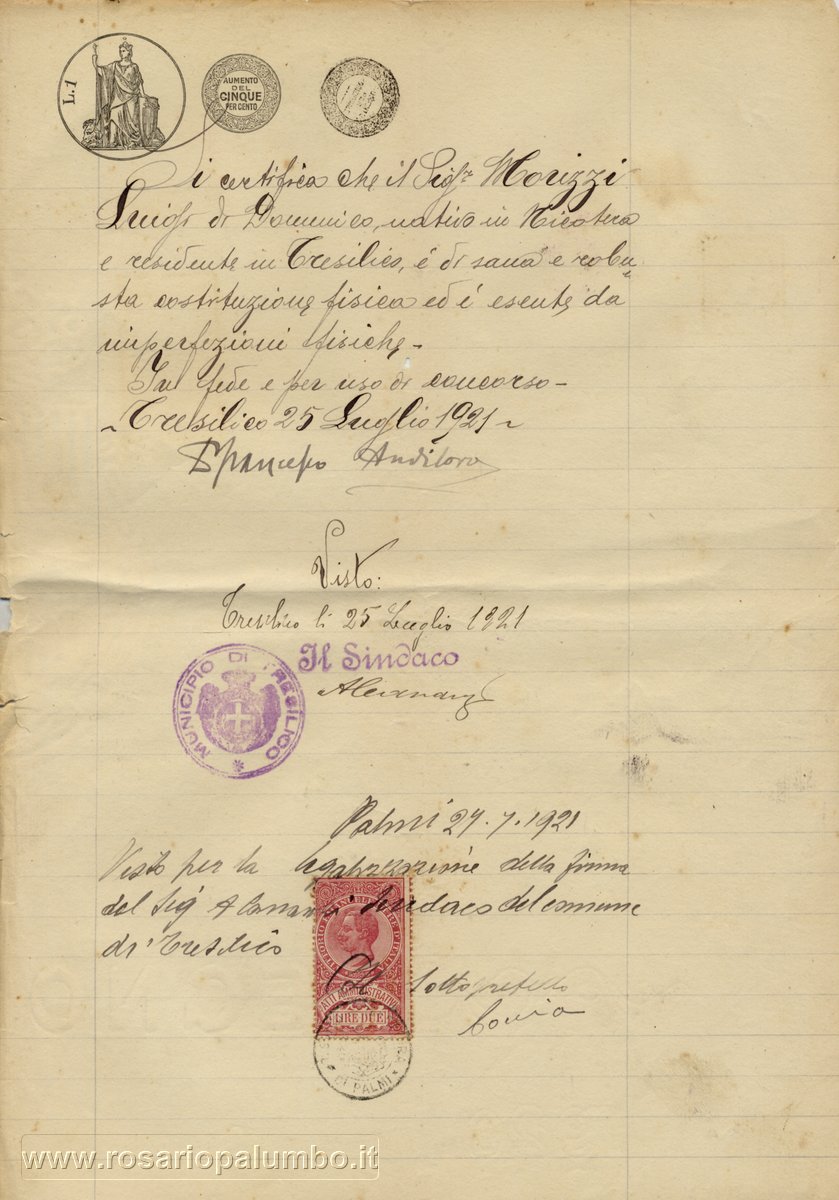 L.1
AUMENTO
DEL
CINQUE
PER CENTO
Si certifica che il Sigr. Morizzi
Luigi di Domenico, nativo in Nicotera
e residente in Tresilico, é di sana e robu-
sta costituzione fisica ed é esente da
imperfezioni fisiche-
In fede e per uso di concorso-
Tresilico 25 Luglio 1921-
Francesco Auditore
Visto:
Tresilico li 25 Luglio 1921
Il Sindaco
MUNICIPIO DI TRESILICO
Palmi 27.7.1921
Visto per la legalizzazione della firma
del Sig Sindaco del comune
di Tresilico
Il Sottoprefetto
ATTI AMMINISTRATIVI
LIRE DUE
DI PALMI
www.rosariopalumbo.it